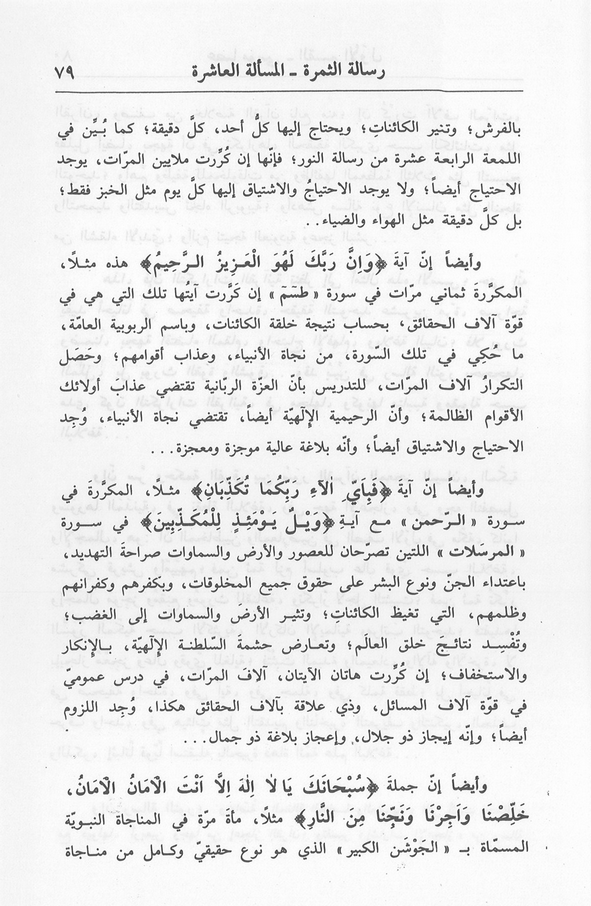 رسالة الثمرة ـ المسألة العاشرة ٧٩
بالفرش؛ وتنير الكائناتِ؛ ويحتاج إليها كلُّ أحد، كلَّ دقيقة؛ كما بُيِّن في
اللمعة الرابعة عشرة من رسالة النور؛ فإنّها إن كُرِّرت ملايين المرّات، يوجد
الاحتياج أيضاً؛ ولا يوجد الاحتياجُ والاشتياق إليها كلَّ يوم مثل الخبز فقط؛
بل كلَّ دقيقة مثل الهواء والضياء..
وأيضاً إنّ آية ﴿وَاِنَّ رَبَّكَ لَهُوَ الْعَزِيزُ الرَّحِيمُ﴾ هذه مثلاً،
المكرَّرة ثماني مرّات في سورة «طٓسٓمٓ» إن كَرَّرت آيتُها تلك التي هي في
قوّة آلاف الحقائق، بحساب نتيجة خلقة الكائنات، وباسم الربوبية العامّة،
ما حُكِي في تلك السّورة، من نجاة الأنبياء، وعذاب أقوامهم؛ وحَصَل
التكرارُ آلاف المرّات، للتدريس بأنّ العزّة الربّانية تقتضي عذابَ أولائك
الأقوام الظالمة؛ وأنّ الرحيمية الإلٓهيّة أيضاً، تقتضي نجاة الأنبياء، وُجِد
الاحتياج والاشتياق أيضاً؛ وأنّه بلاغة عالية موجزة ومعجزة...
وأيضاً إنّ آيةَ ﴿فَبِاَيِّ اٰلَآءِ رَبِّكُمَا تُكَذِّبَانِ﴾ مثلاً، المكرَّرةَ في
سورة «الرحمن» مع آيةِ ﴿وَيْلٌ يَوْمَئِذٍ لِلْمُكَذِّبِينَ﴾ في سورة
«المرسَلات» اللتين تصرّحان للعصور والأرض والسماوات صراحةَ التهديد،
باعتداء الجنّ ونوع البشر على حقوق جميع المخلوقات، وبكفرهم وكفرانهم
وظلمهم، التي تغيظ الكائناتِ؛ وتثير الأرضَ والسماوات إلى الغضب؛
وتُفْسِد نتائجَ خلق العالَم؛ وتعارض حشمةَ السّلطنة الإلٓهيّة، بالإنكار
والاستخفاف؛ إن كُرِّرت هاتان الآيتان، آلافَ المرّات، في درس عموميّ
في قوّة آلاف المسائل، وذي علاقة بآلاف الحقائق هكذا، وُجِد اللزوم
أيضاً؛ وإنّه إيجاز ذو جلال، وإعجاز بلاغة ذو جمال...
وأيضاً إنّ جملةَ ﴿سُبْحَانَكَ يَا لَا اِلٰهَ اِلَّا اَنْتَ الْاَمَانُ الْاَمَانُ،
خَلِّصْنَا وَاَجِرْنَا وَنَجِّنَا مِنَ النَّارِ﴾ مثلاً، مأةَ مرّة في المناجاة النبويّة
المسمّاة بـ «الجَوْشن الكبير» الذي هو نوع حقيقيّ وكامل من مناجاة